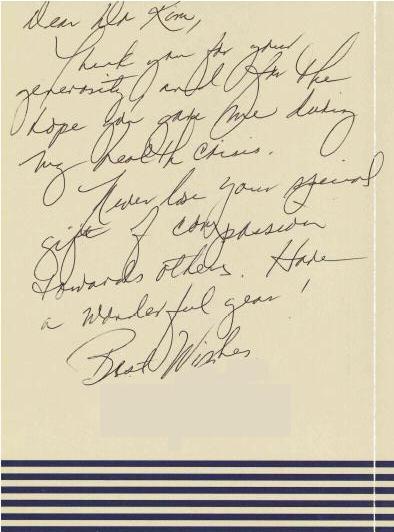 Dear Dr Kim,
Thank you for your
generosity and for the
hope you gave me during
my health crisis.
Never lose your special
gift of compassion
towards others. Have
a wonderful year!
Best Wishes